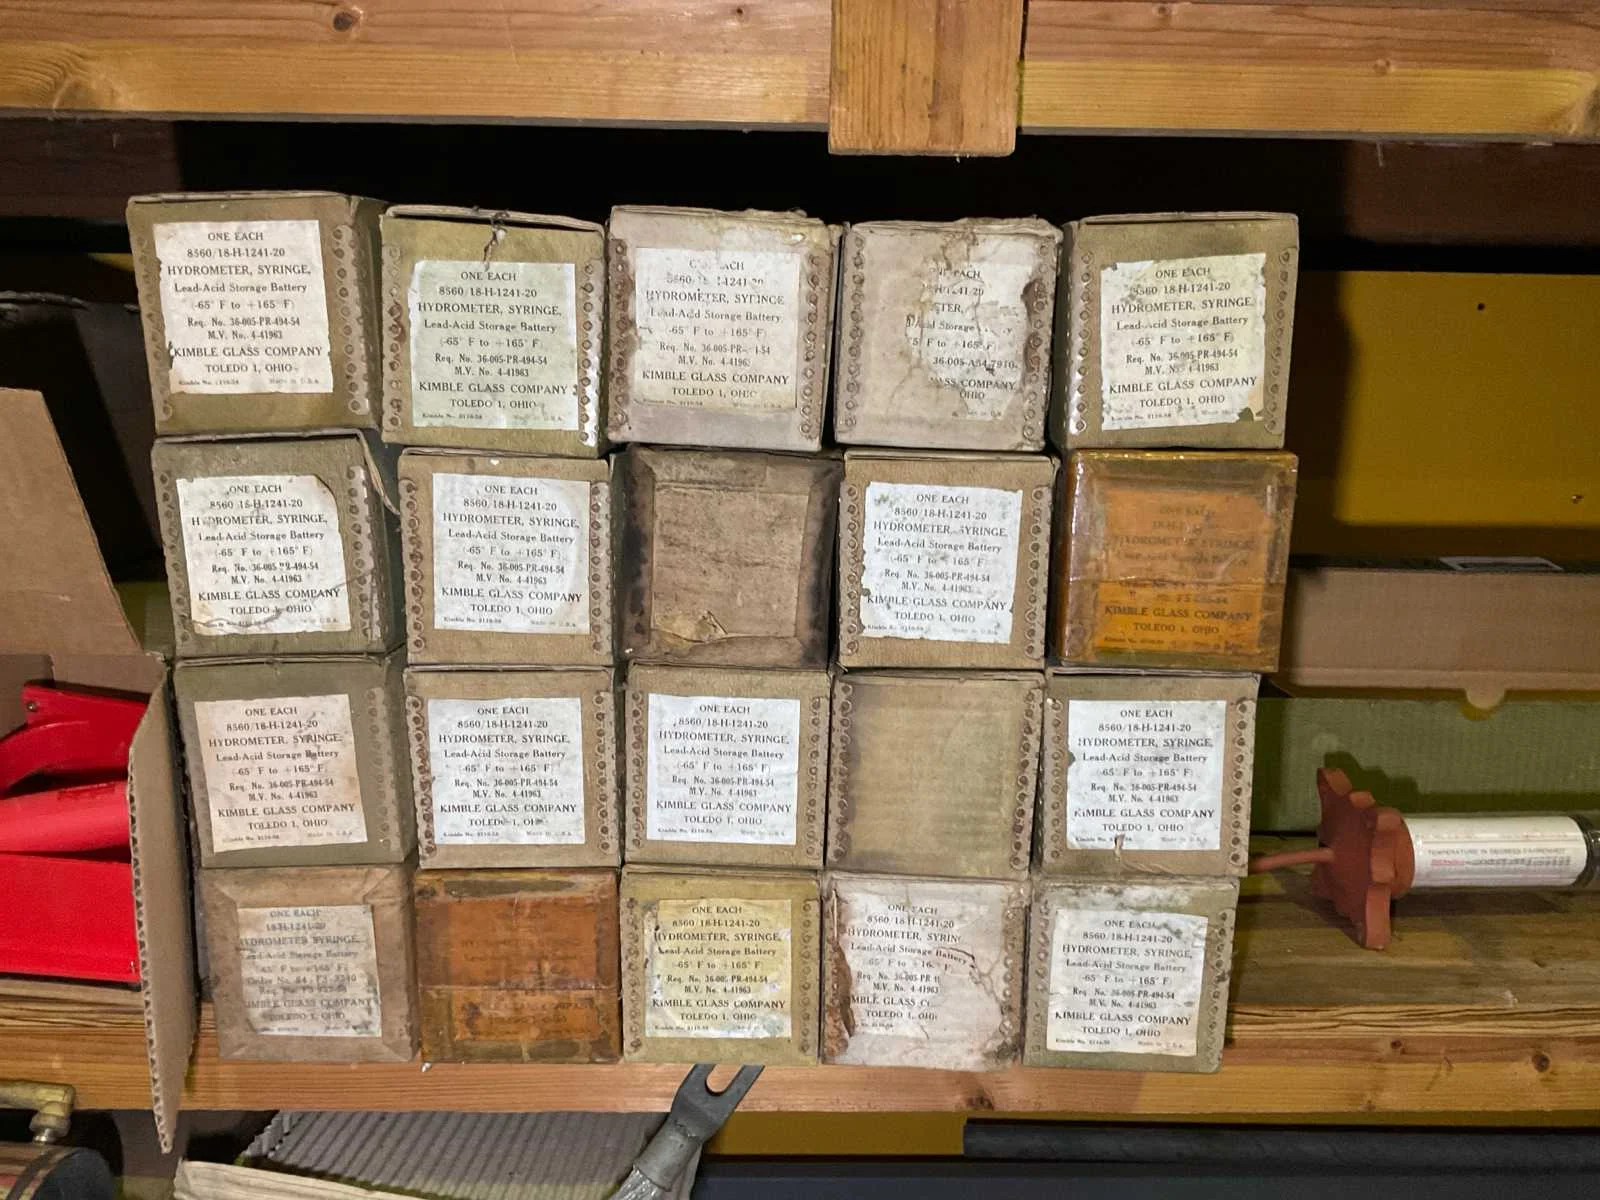 ONE EACH
8560/18-H-1241-20
HYDROMETER, SYRINGE,
Lead-Acid Storage Battery
(-65° F to +165° F)
Req. No. 36-005-PR-494-54
M.V. No. 4-41963
KIMBLE GLASS COMPANY
TOLEDO 1, OHIO
Made in U.S.A.
ONE EACH
8560/18-H-1241-20
HYDROMETER, SYRINGE,
Lead-Acid Storage Battery
(-65° F to +165° F)
Req. No. 36-005-PR-494-54
M.V. No. 4-41963
KIMBLE GLASS COMPANY
TOLEDO 1, OHIO
Kimble No. 3110-58
HYDROMETER, SYRINGE
Lead-Acid Storage Battery
(-65° F to +165° F)
M.V. No.
KIMBLE GLASS COMPANY
TOLEDO 1, OHIO
Storage
36-005-A54-7910
COMPANY
OHIO
ONE EACH
8560/18-H-1241-20
HYDROMETER, SYRINGE,
Lead-Acid Storage Battery
(-65° F to +165° F)
Req. No. 36-005-PR-494-54
M.V. No. 4-41963
KIMBLE GLASS COMPANY
TOLEDO 1, OHIO
ONE EACH
8560/18-H-1241-20
HYDROMETER, SYRINGE,
Lead-Acid Storage Battery
(-65° F to +165° F)
Req. No. 36-005-PR-494-54
M.V. No. 4-41963
KIMBLE GLASS COMPANY
TOLEDO 1, OHIO
ONE EACH
8560/18-H-1241-20
HYDROMETER, SYRINGE,
Lead-Acid Storage Battery
(-65° F to +165° F)
Req. No. 36-005-PR-494-54
M.V. No. 4-41963
KIMBLE GLASS COMPANY
TOLEDO 1, OHIO
Kimble No. 3110-58 Made in U.S.A.
ONE EACH
8560/18-H-1241-20
HYDROMETER, SYRINGE,
Lead-Acid Storage Battery
(-65° F to +165° F)
Req. No. 36-005-PR-494-54
M.V. No. 4-41963
KIMBLE GLASS COMPANY
TOLEDO 1, OHIO
ONE EACH
HYDROMETER, SYRINGE,
KIMBLE GLASS COMPANY
TOLEDO 1, OHIO
ONE EACH
8560/18-H-1241-20
HYDROMETER, SYRINGE,
Lead-Acid Storage Battery
(-65° F to +165° F)
Req. No. 36-005-PR-494-54
M.V. No. 4-41963
KIMBLE GLASS COMPANY
TOLEDO 1, OHIO
Kimble No. 3110-58 Made in U.S.A.
ONE EACH
8560/18-H-1241-20
HYDROMETER, SYRINGE,
Lead-Acid Storage Battery
(-65° F to +165° F)
Req. No. 36-005-PR-494-54
M.V. No. 4-41963
KIMBLE GLASS COMPANY
TOLEDO 1, OHIO
Kimble No. 3110-58 Made in U.S.A.
ONE EACH
8560/18-H-1241-20
HYDROMETER, SYRINGE,
Lead-Acid Storage Battery
(-65° F to +165° F)
Req. No. 36-005-PR-494-54
M.V. No. 4-41963
KIMBLE GLASS COMPANY
TOLEDO 1, OHIO
Kimble No. 3110-58 Made in U.S.A.
ONE EACH
8560/18-H-1241-20
HYDROMETER, SYRINGE,
Lead-Acid Storage Battery
(-65° F to +165° F)
Req. No. 36-005-PR-494-54
M.V. No. 4-41963
KIMBLE GLASS COMPANY
TOLEDO 1, OHIO
Kimble No. 3110-58 Made in U.S.A.
TEMPERATURE IN DEGREES FAHRENHEIT
ONE EACH
18-H-1241-20
HYDROMETER SYRINGE,
Lead-Acid Storage Battery
KIMBLE GLASS COMPANY
TOLEDO 1, OHIO
ONE EACH
8560/18-H-1241-20
HYDROMETER, SYRINGE,
Lead-Acid Storage Battery
-65° F to +165° F
Req. No. 36-005-PR-494-54
M.V. No. 4-41963
KIMBLE GLASS COMPANY
TOLEDO 1, OHIO
ONE EACH
8560/18-H-1241-20
HYDROMETER,
Lead-Acid Storage Battery
Req. No. 36-005-PR
M.V. No. 4-41963
TOLEDO 1,
ONE EACH
8560/18-H-1241-20
HYDROMETER, SYRINGE,
Lead-Acid Storage Battery
(-65° F to +165° F)
Req. No. 36-005-PR-494-54
M.V. No. 4-41963
KIMBLE GLASS COMPANY
TOLEDO 1, OHIO
Made in U.S.A.